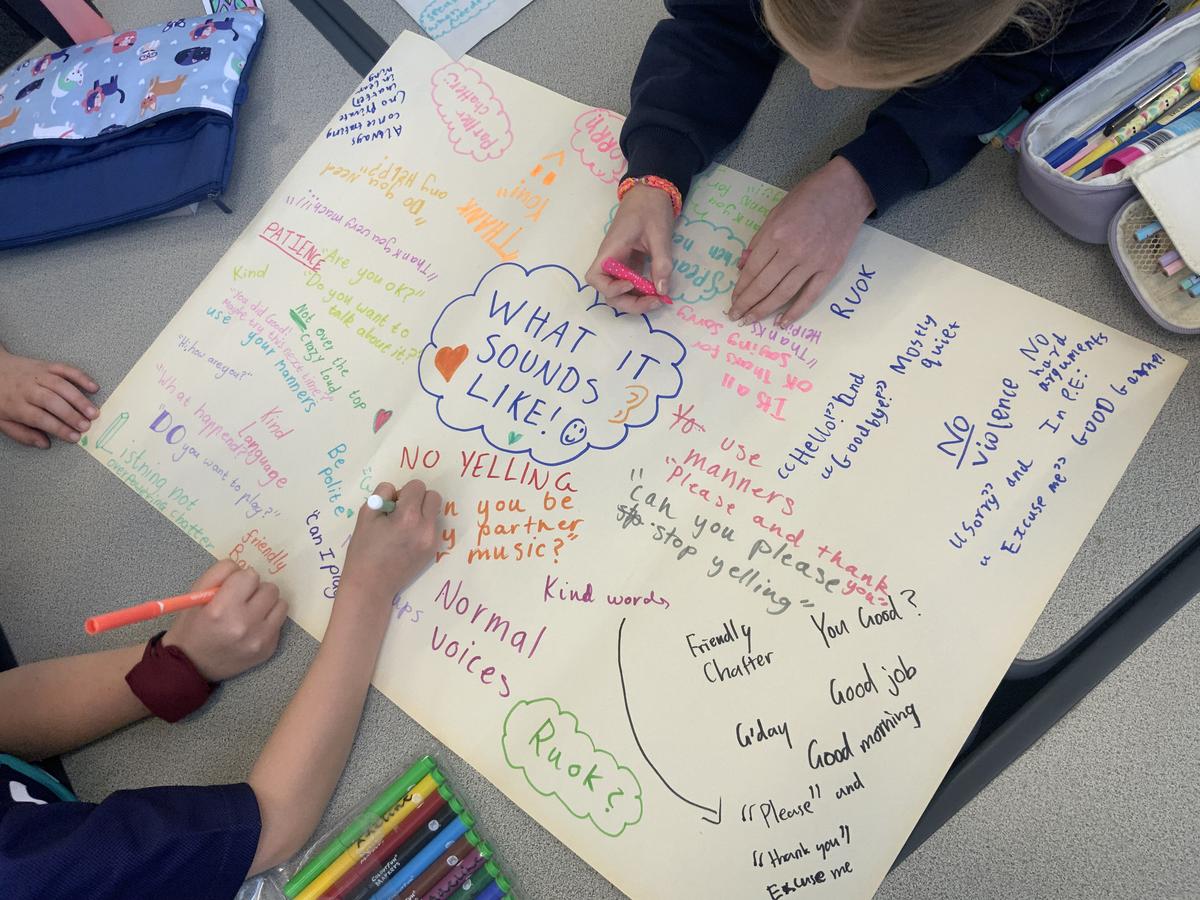 WHAT IT
SOUNDS
LIKE!
Partner
chatter!
Always
concentrating
(no private
chatter)
"Do you need
any HELP?"
THANK
YOU!
"Thank you very much!!!"
PATIENCE
Kind
"Are you ok?"
"Do you want to
talk about it?"
"You did Good!
Maybe try this next time?"
use your manners
Not over the top
crazy loud
"Hi, how are you?"
"What happend?"
Kind
Language
DO you want to play?"
Listning not
overpowering chatter
Be
polite
friendly
"can I play
NO YELLING
n you be
y partner
r music?"
Normal
voices
Kind words
Ruok?
use
manners
"Please and thank
you"
"can you please
stop yelling"
It's all
OK Thanks for
Saying sorry
"Thanks
Helping
RUOK
Mostly
quiet
"Hello!" and
"Goodbye?"
NO
violence
No
hard
arguments
In P.E:
GOOD Game!
"Sorry" and
"Excuse me"
Friendly
Chatter
You Good?
Good job
G'day
Good morning
"Please" and
"thank you"
Excuse me